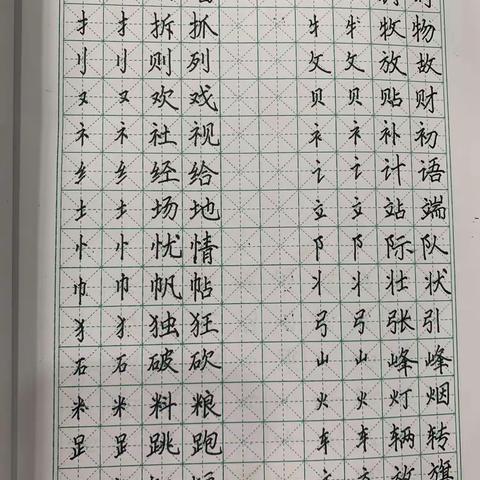 扌 扌 拆 抓 牜 牜 牧 物
刂 刂 则 列 攵 攵 放 故
又 又 欢 戏 贝 贝 贴 财
礻 礻 社 视 衤 衤 补 初
纟 纟 经 给 讠 讠 计 语
土 土 场 地 立 立 站 端
忄 忄 忧 情 阝 阝 际 队
巾 巾 帆 帖 丬 丬 壮 状
犭 犭 独 狂 弓 弓 张 引
石 石 破 砍 山 山 峰 峰
米 米 料 粮 火 火 灯 烟
𧾷 𧾷 跳 跑 车 车 辆 转
方 方 放 旗